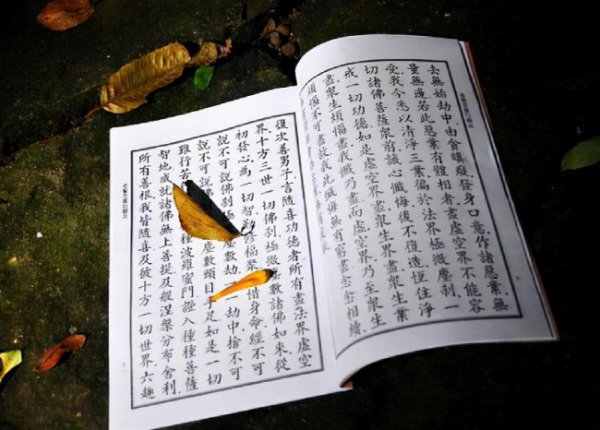 去無始劫中由貪瞋癡發身口意作諸惡業無
量無邊若此惡業有體相者盡虛空界不能容
受我今悉以清淨三業徧於法界極微塵剎一
切諸佛菩薩眾前誠心懺悔後不復造恆住淨
戒一切功德如是虛空界盡眾生界盡眾生業
盡眾生煩惱盡我懺乃盡而虛空界乃至眾生
煩惱不可盡故我此懺悔無有窮盡念念相續
復次善男子言隨喜功德者所有盡法界虛空
界十方三世一切佛剎極微塵數諸佛如來從
初發心為一切智勤修福聚惜身命經不可
說不可說佛剎極微塵數劫一劫中捨不可
說不可說佛塵數頭目手足如是一切
難行苦種波羅蜜門證入種種菩薩
智地成就諸佛無上菩提及般涅槃分布舍利
所有善根我皆隨喜及彼十方一切世界六趣